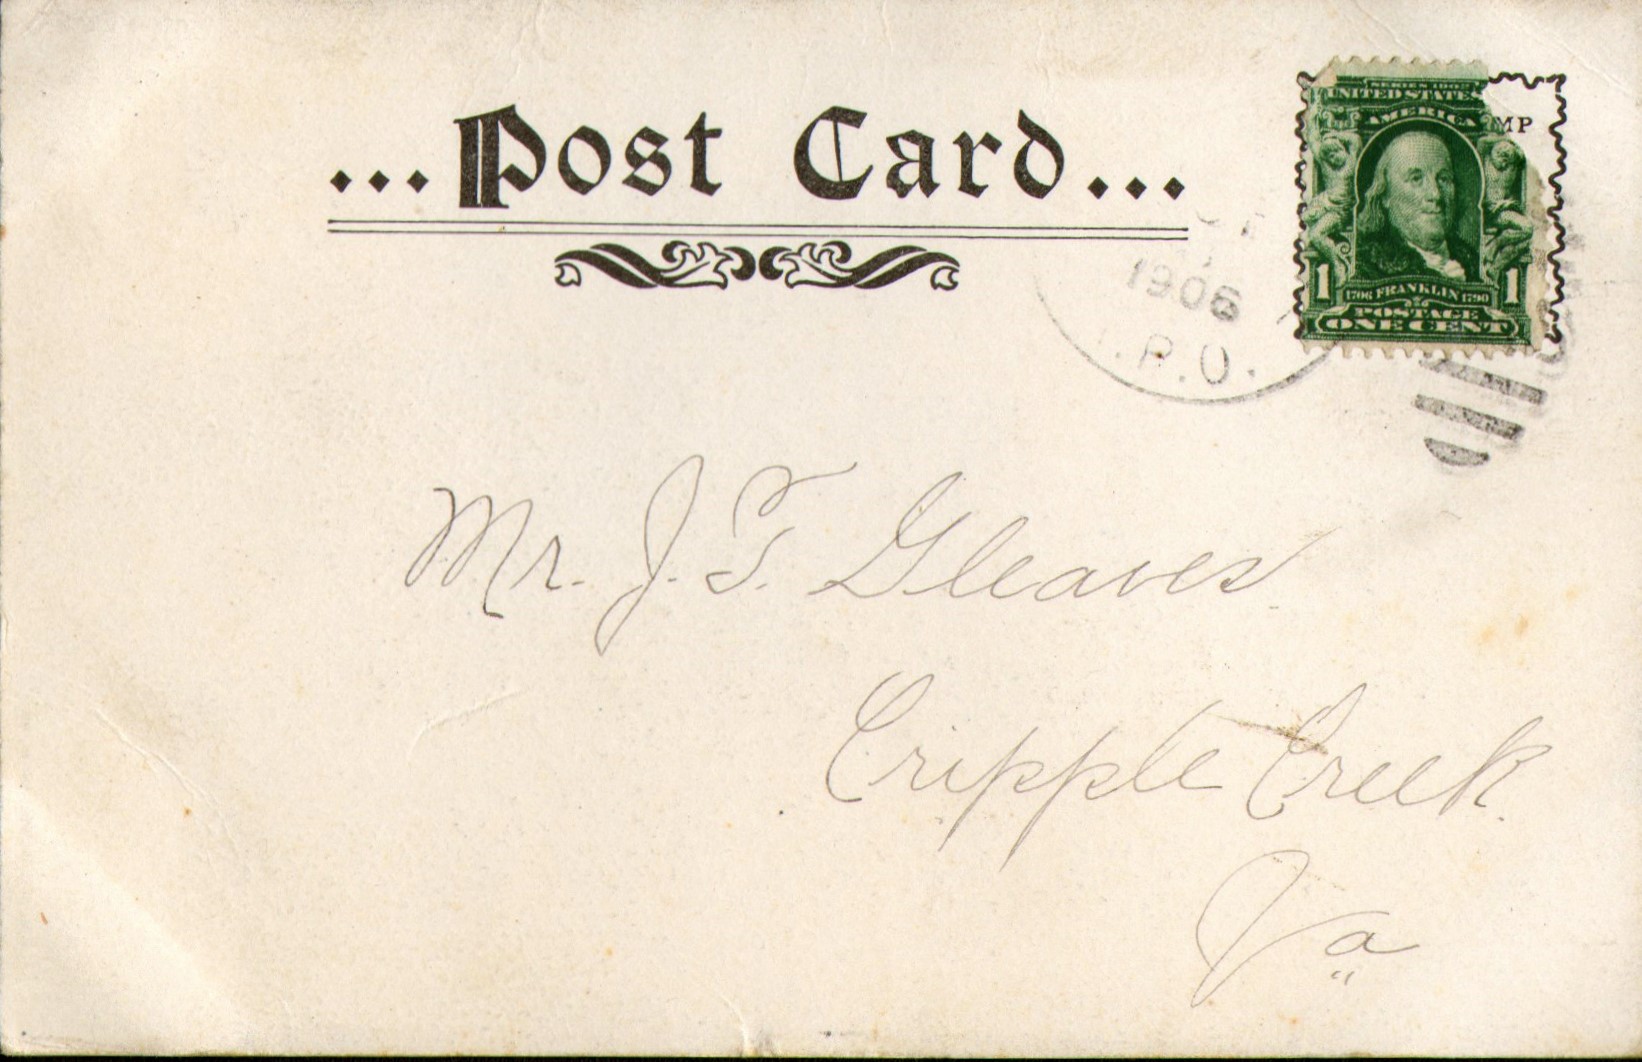 ...Post Card...
SERIES 1902
UNITED STATES
AMERICA
1 1706 FRANKLIN 1790 1
POSTAGE
ONE CENT
MP
1906
R.P.O.
Mr. J. T. Gleaves
Cripple Creek.
Va